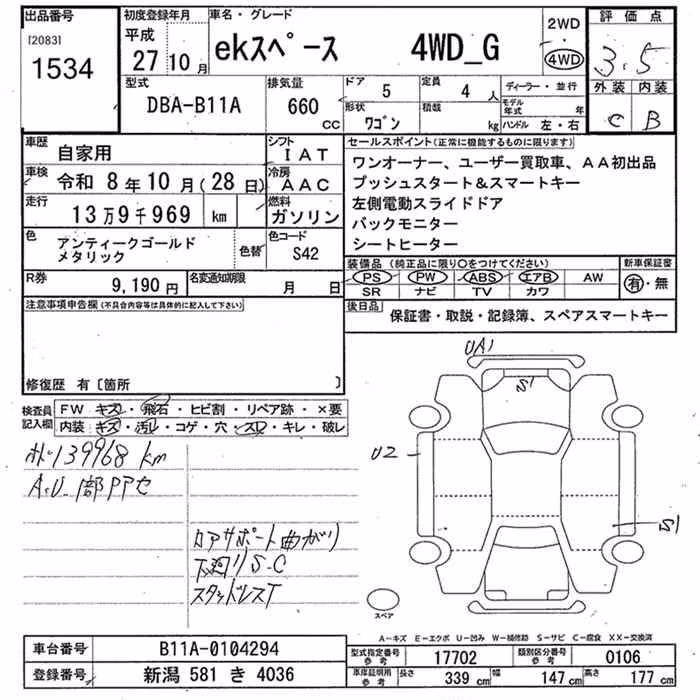 出品番号
[2083]
1534
初度登録年月
平成
27年10月
車名・グレード
ekスペース 4WD_G
2WD
・
4WD
評価点
3.5
外装 内装
C B
型式
DBA-B11A
排気量
660 CC
ドア 5
形状 ワゴン
定員 4 人
積載 kg
ディーラー・並行
モデル年式 年
ハンドル 左・右
車歴 自家用
シフト IAT
車検 令和 8年10月(28日)
冷房 AAC
走行 13万9千969 km
燃料 ガソリン
色 アンティークゴールド
メタリック
色替
色コード S42
R券 9,190円
名変通知期限 月 日
セールスポイント(正常に機能するものに限ります)
ワンオーナー、ユーザー買取車、AA初出品
プッシュスタート&スマートキー
左側電動スライドドア
バックモニター
シートヒーター
装備品(純正品に限り○をつけてください)
PS PW ABS エアB AW
SR ナビ TV カワ
新車保証書
有・無
後日品 保証書・取説・記録簿、スペアスマートキー
注意事項申告欄(不具合内容等は具体的に記入して下さい)
修復歴 有〔箇所 〕
検査員記入欄
FW キズ・飛石・ヒビ割・リペア跡・×要
内装 キズ・汚レ・コゲ・穴・スレ・キレ・破レ
139968 km
コアサポート曲がり
下廻りS.C
スタッドレスT
UA1
S1
U2
S1
スペア
A-キズ E-エクボ U-凹み W-補修跡 S-サビ C-腐食 XX-交換済
車台番号 B11A-0104294
登録番号 新潟 581 き 4036
型式指定番号 参考 17702
類別区分番号 参考 0106
車庫証明用 参考 長さ 339 cm 幅 147 cm 高さ 177 cm